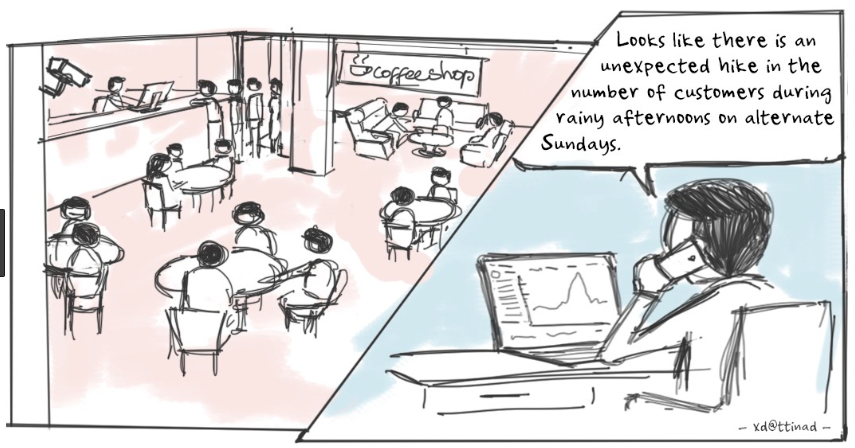 coffee shop
Looks like there is an
unexpected hike in the
number of customers during
rainy afternoons on alternate
Sundays.
- xd@ttinad -